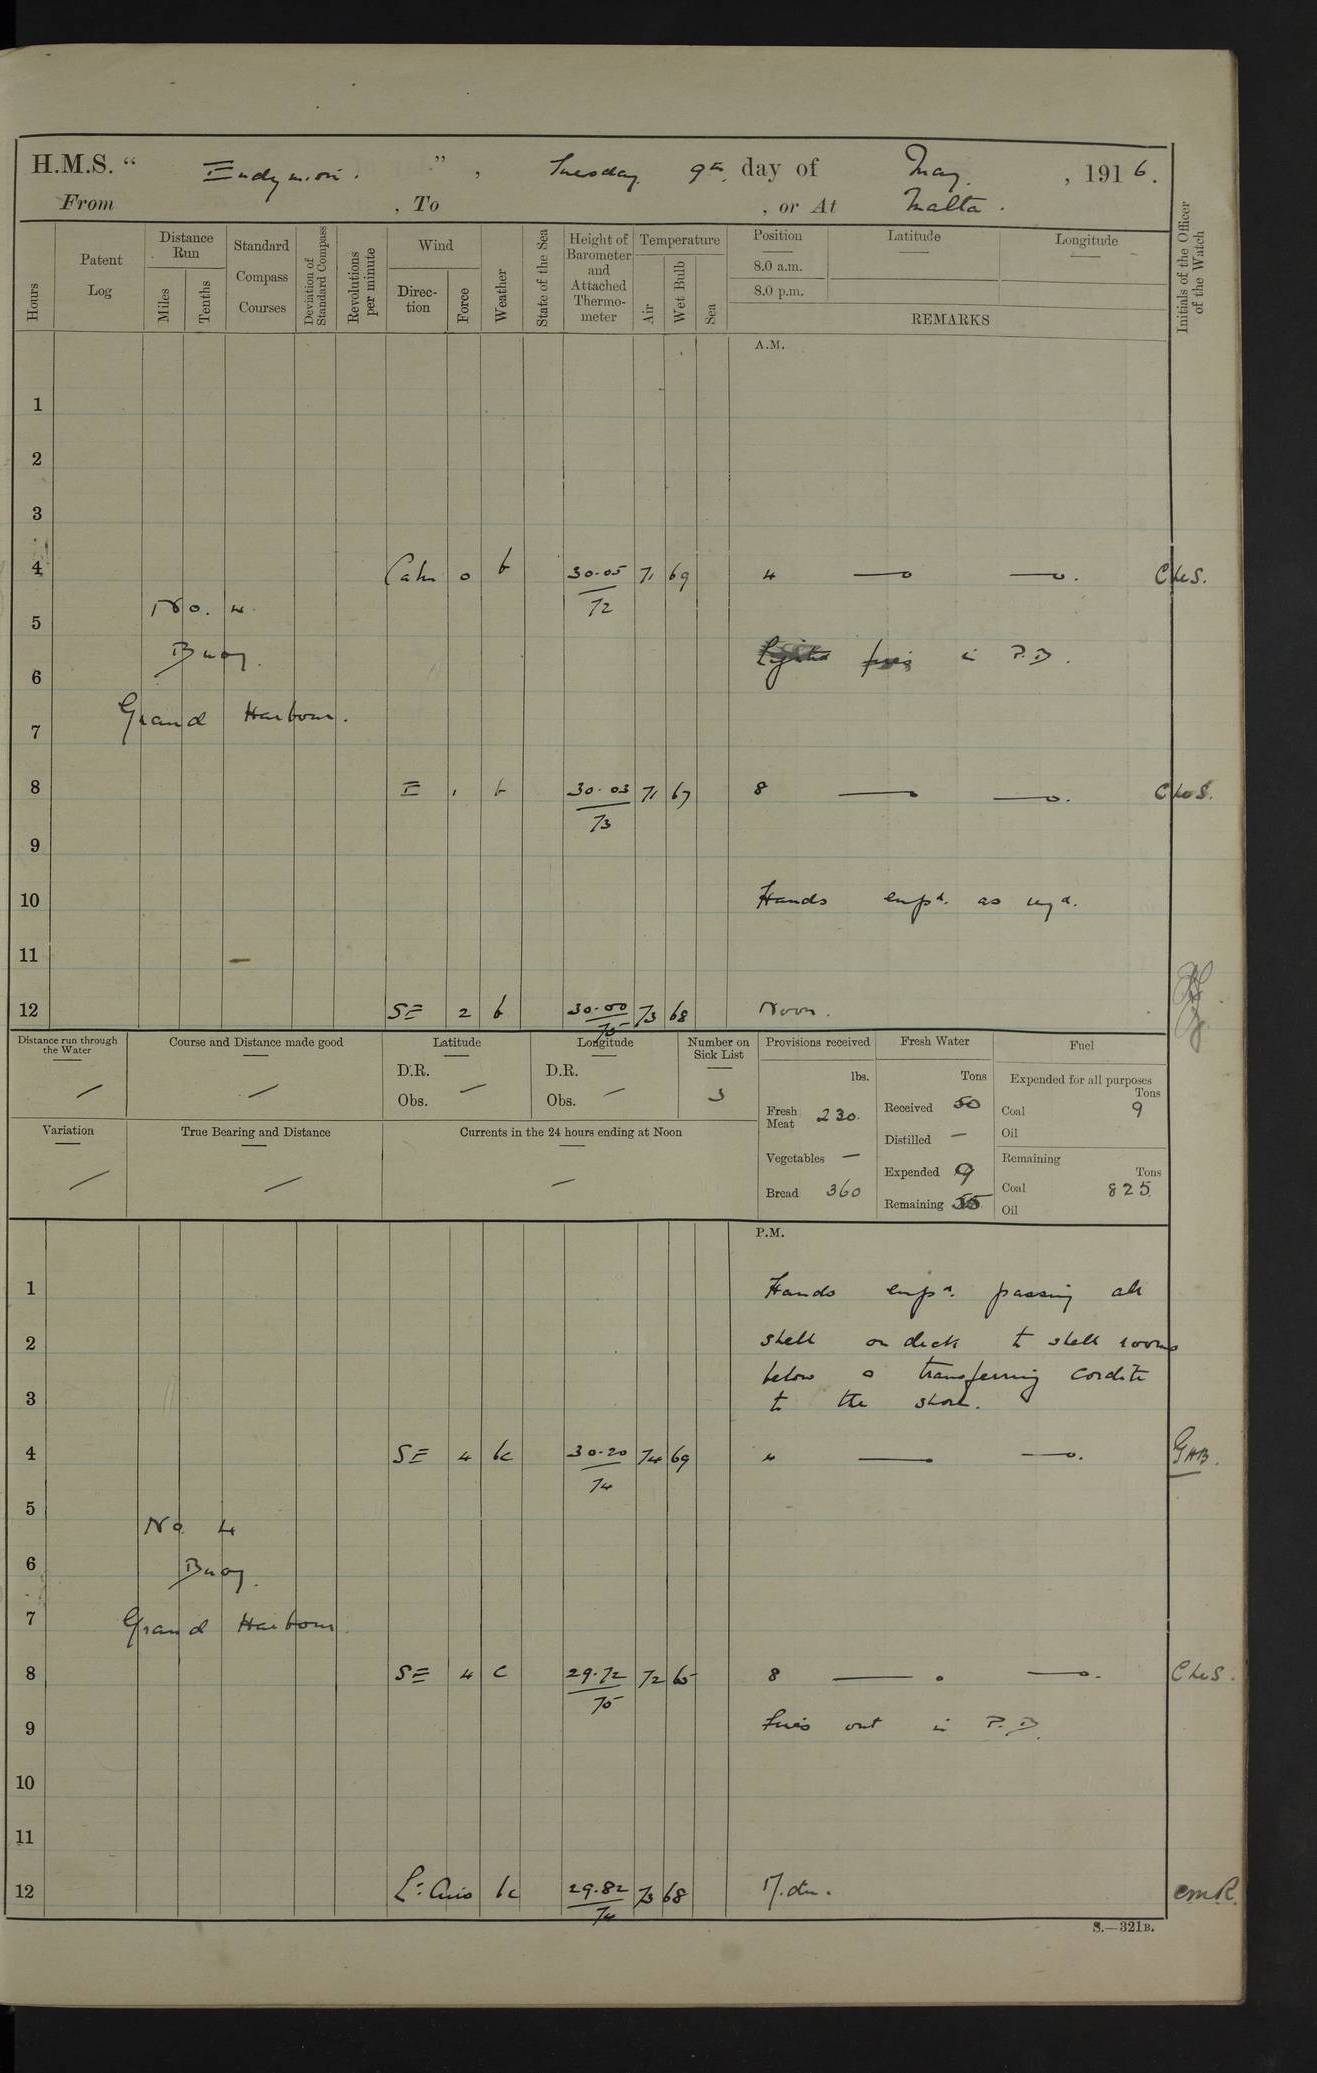 H.M.S. "Endymion.", Tuesday 9th day of May, 1916.
From , To , or At Malta.
Hours
Patent Log
Distance Run
Miles
Tenths
Standard Compass Courses
Deviation of Standard Compass
Revolutions per minute
Wind
Direction
Force
Weather
State of the Sea
Height of Barometer and Attached Thermometer
Temperature
Air
Wet Bulb
Sea
Position
Latitude
Longitude
8.0 a.m.
8.0 p.m.
REMARKS
Initials of the Officer of the Watch
A.M.
1
2
3
4 Calm 0 b 30.05 71 69 4
72
No. 4
5
Buoy.
Lighted fires in P.D.
6
Grand Harbour.
7
8 E 1 b 30.03 71 67 8
73
9
10 Hands empd. as reqd.
11
12 SE 2 b 30.00 73 68 Noon.
75
Distance run through the Water
Course and Distance made good
Latitude
D.R.
Obs. —
Longitude
D.R.
Obs. —
Number on Sick List
3
Variation
True Bearing and Distance
Currents in the 24 hours ending at Noon
Provisions received
lbs.
Fresh Meat 230.
Vegetables —
Bread 360
Fresh Water
Tons
Received 50
Distilled —
Expended 9
Remaining
Fuel
Expended for all purposes
Tons
Coal 9
Oil
Remaining
Tons
Coal 825
Oil
P.M.
1 Hands empd. passing all
2 shell on deck to shell rooms
below & transferring cordite
3 to the shore.
4 SE 4 bc 30.20 74 69 4 GHB.
74
5
No. 4
6
Buoy.
7
Grand Harbour.
8 SE 4 c 29.72 72 65 8
75
9 Fires out in P.D.
10
11
12 Lt. Airs bc 29.82 73 68 M.dn. CMR.
74
S.—321B.